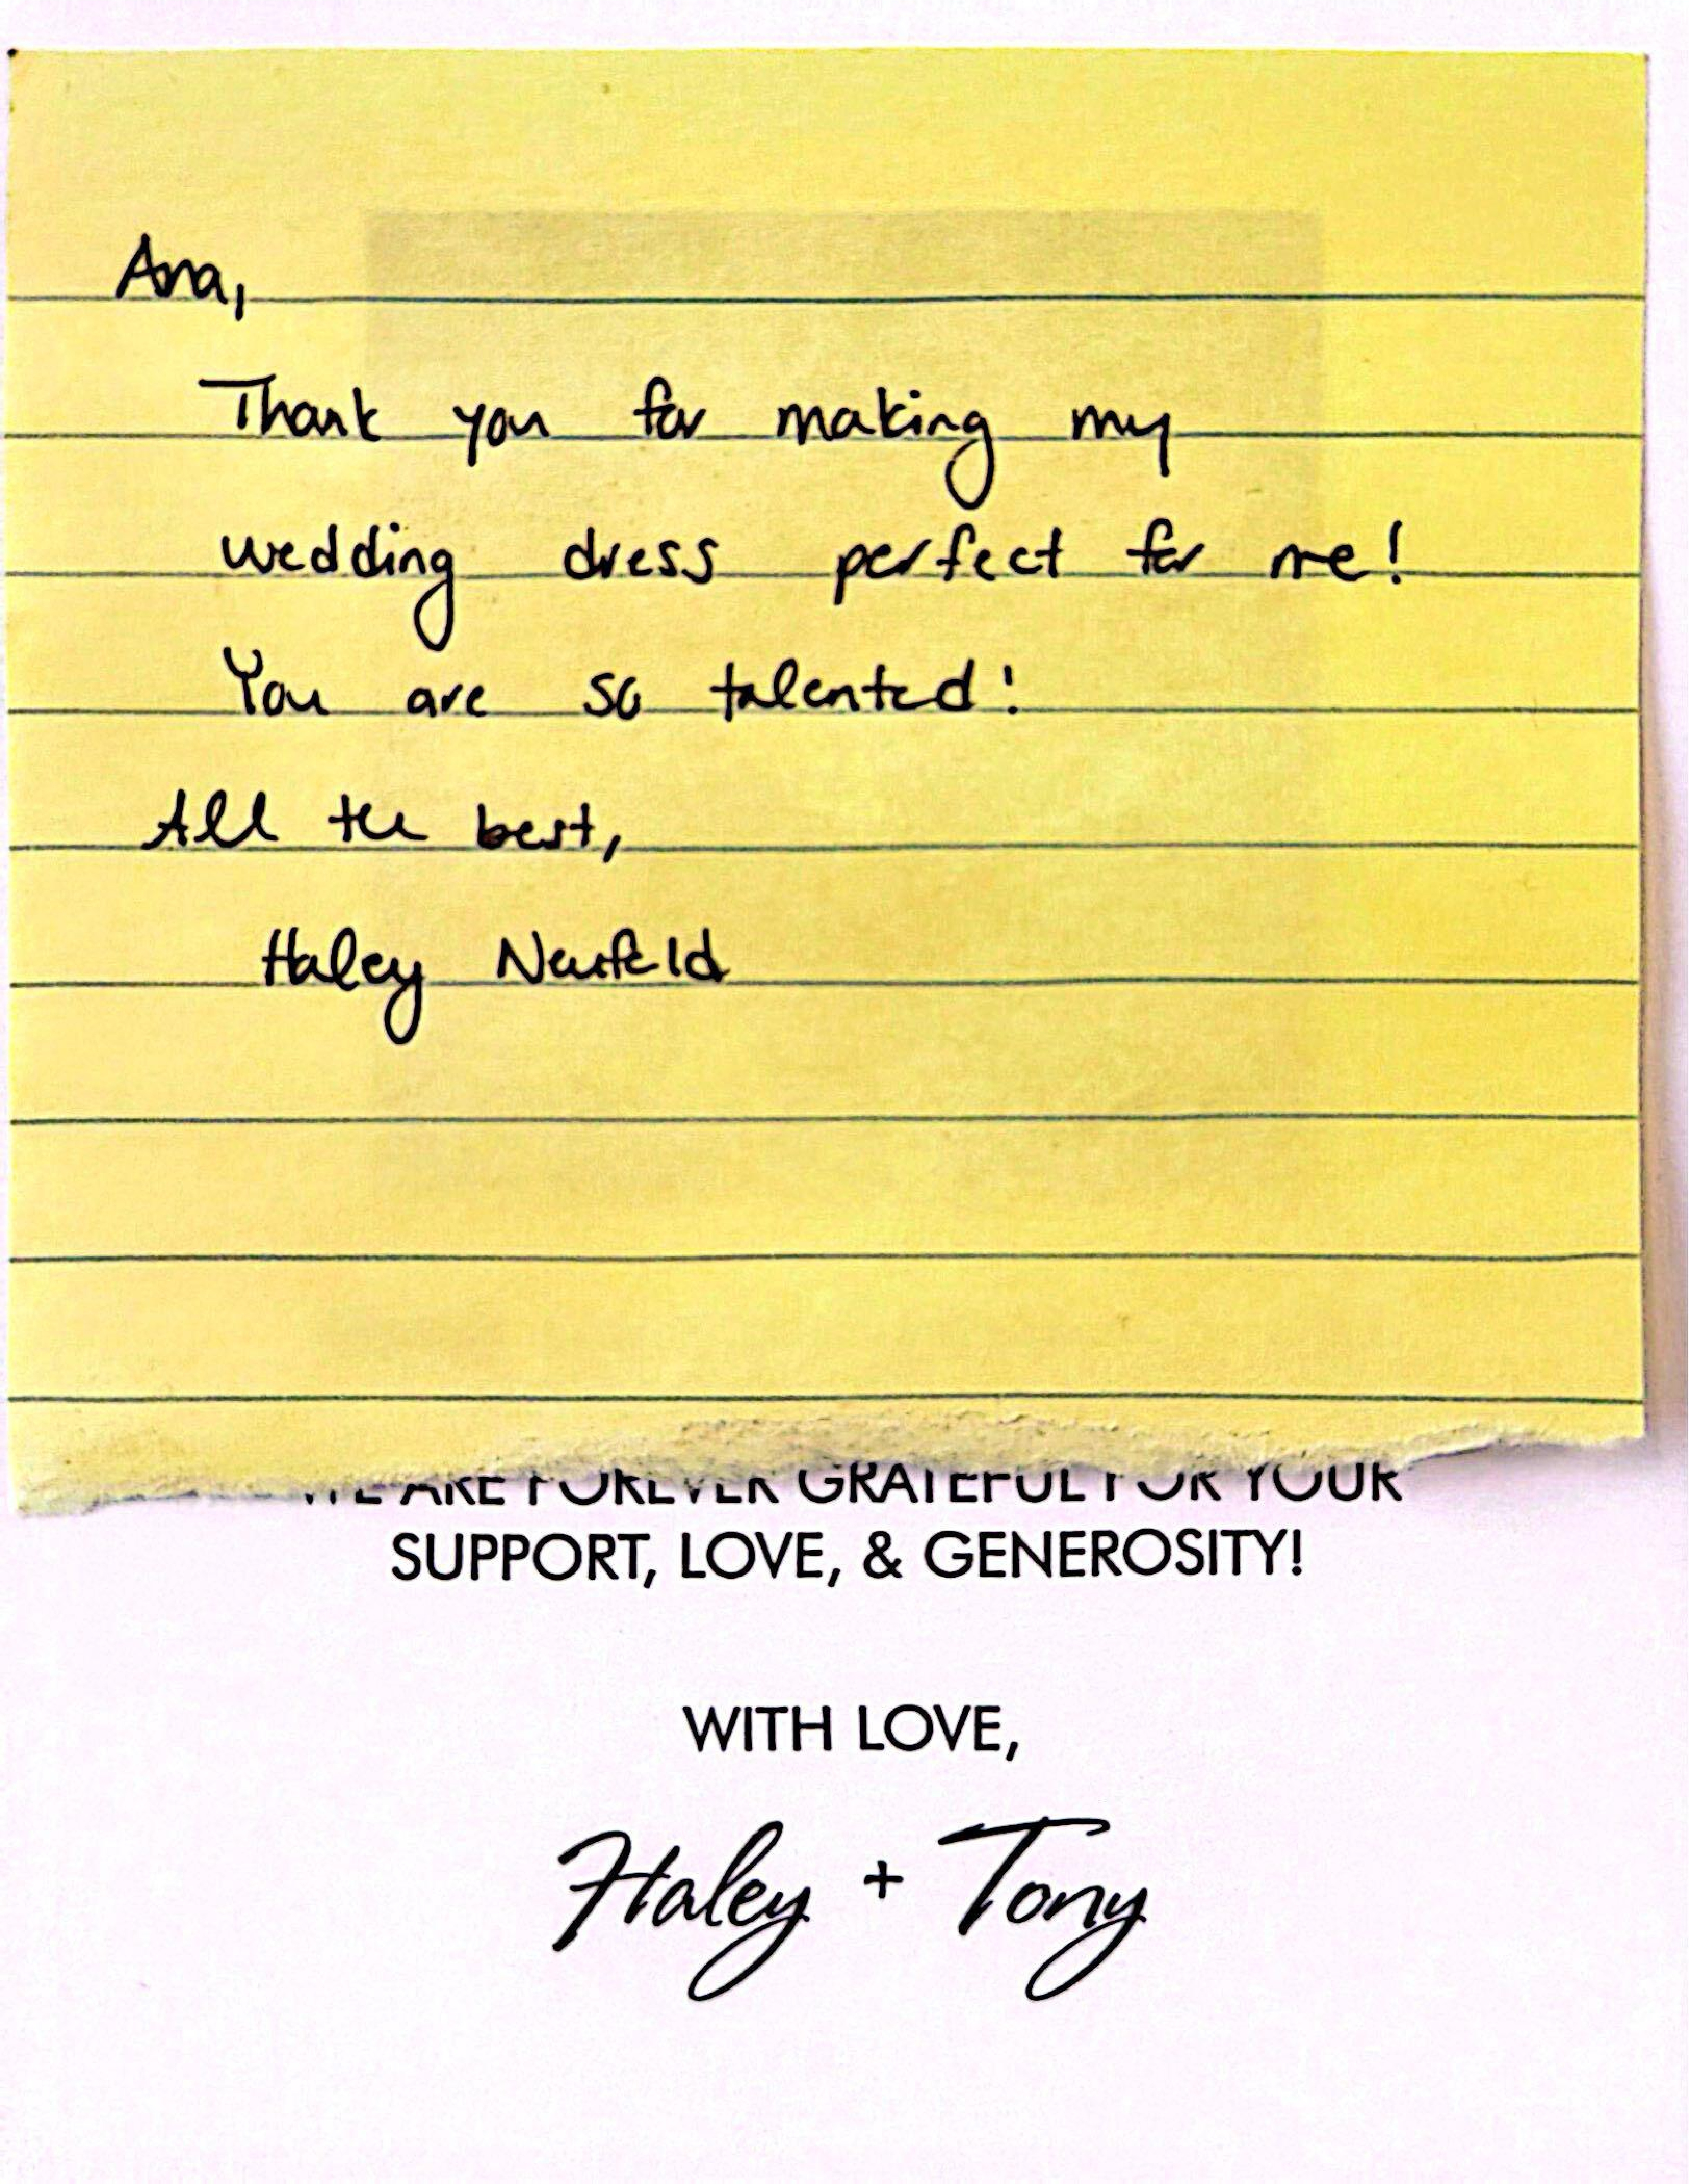 Ana,
Thank you for making my
wedding dress perfect for me!
You are so talented!
All the best,
Haley Neufeld
WE ARE FOREVER GRATEFUL FOR YOUR
SUPPORT, LOVE, & GENEROSITY!
WITH LOVE,
Haley + Tony